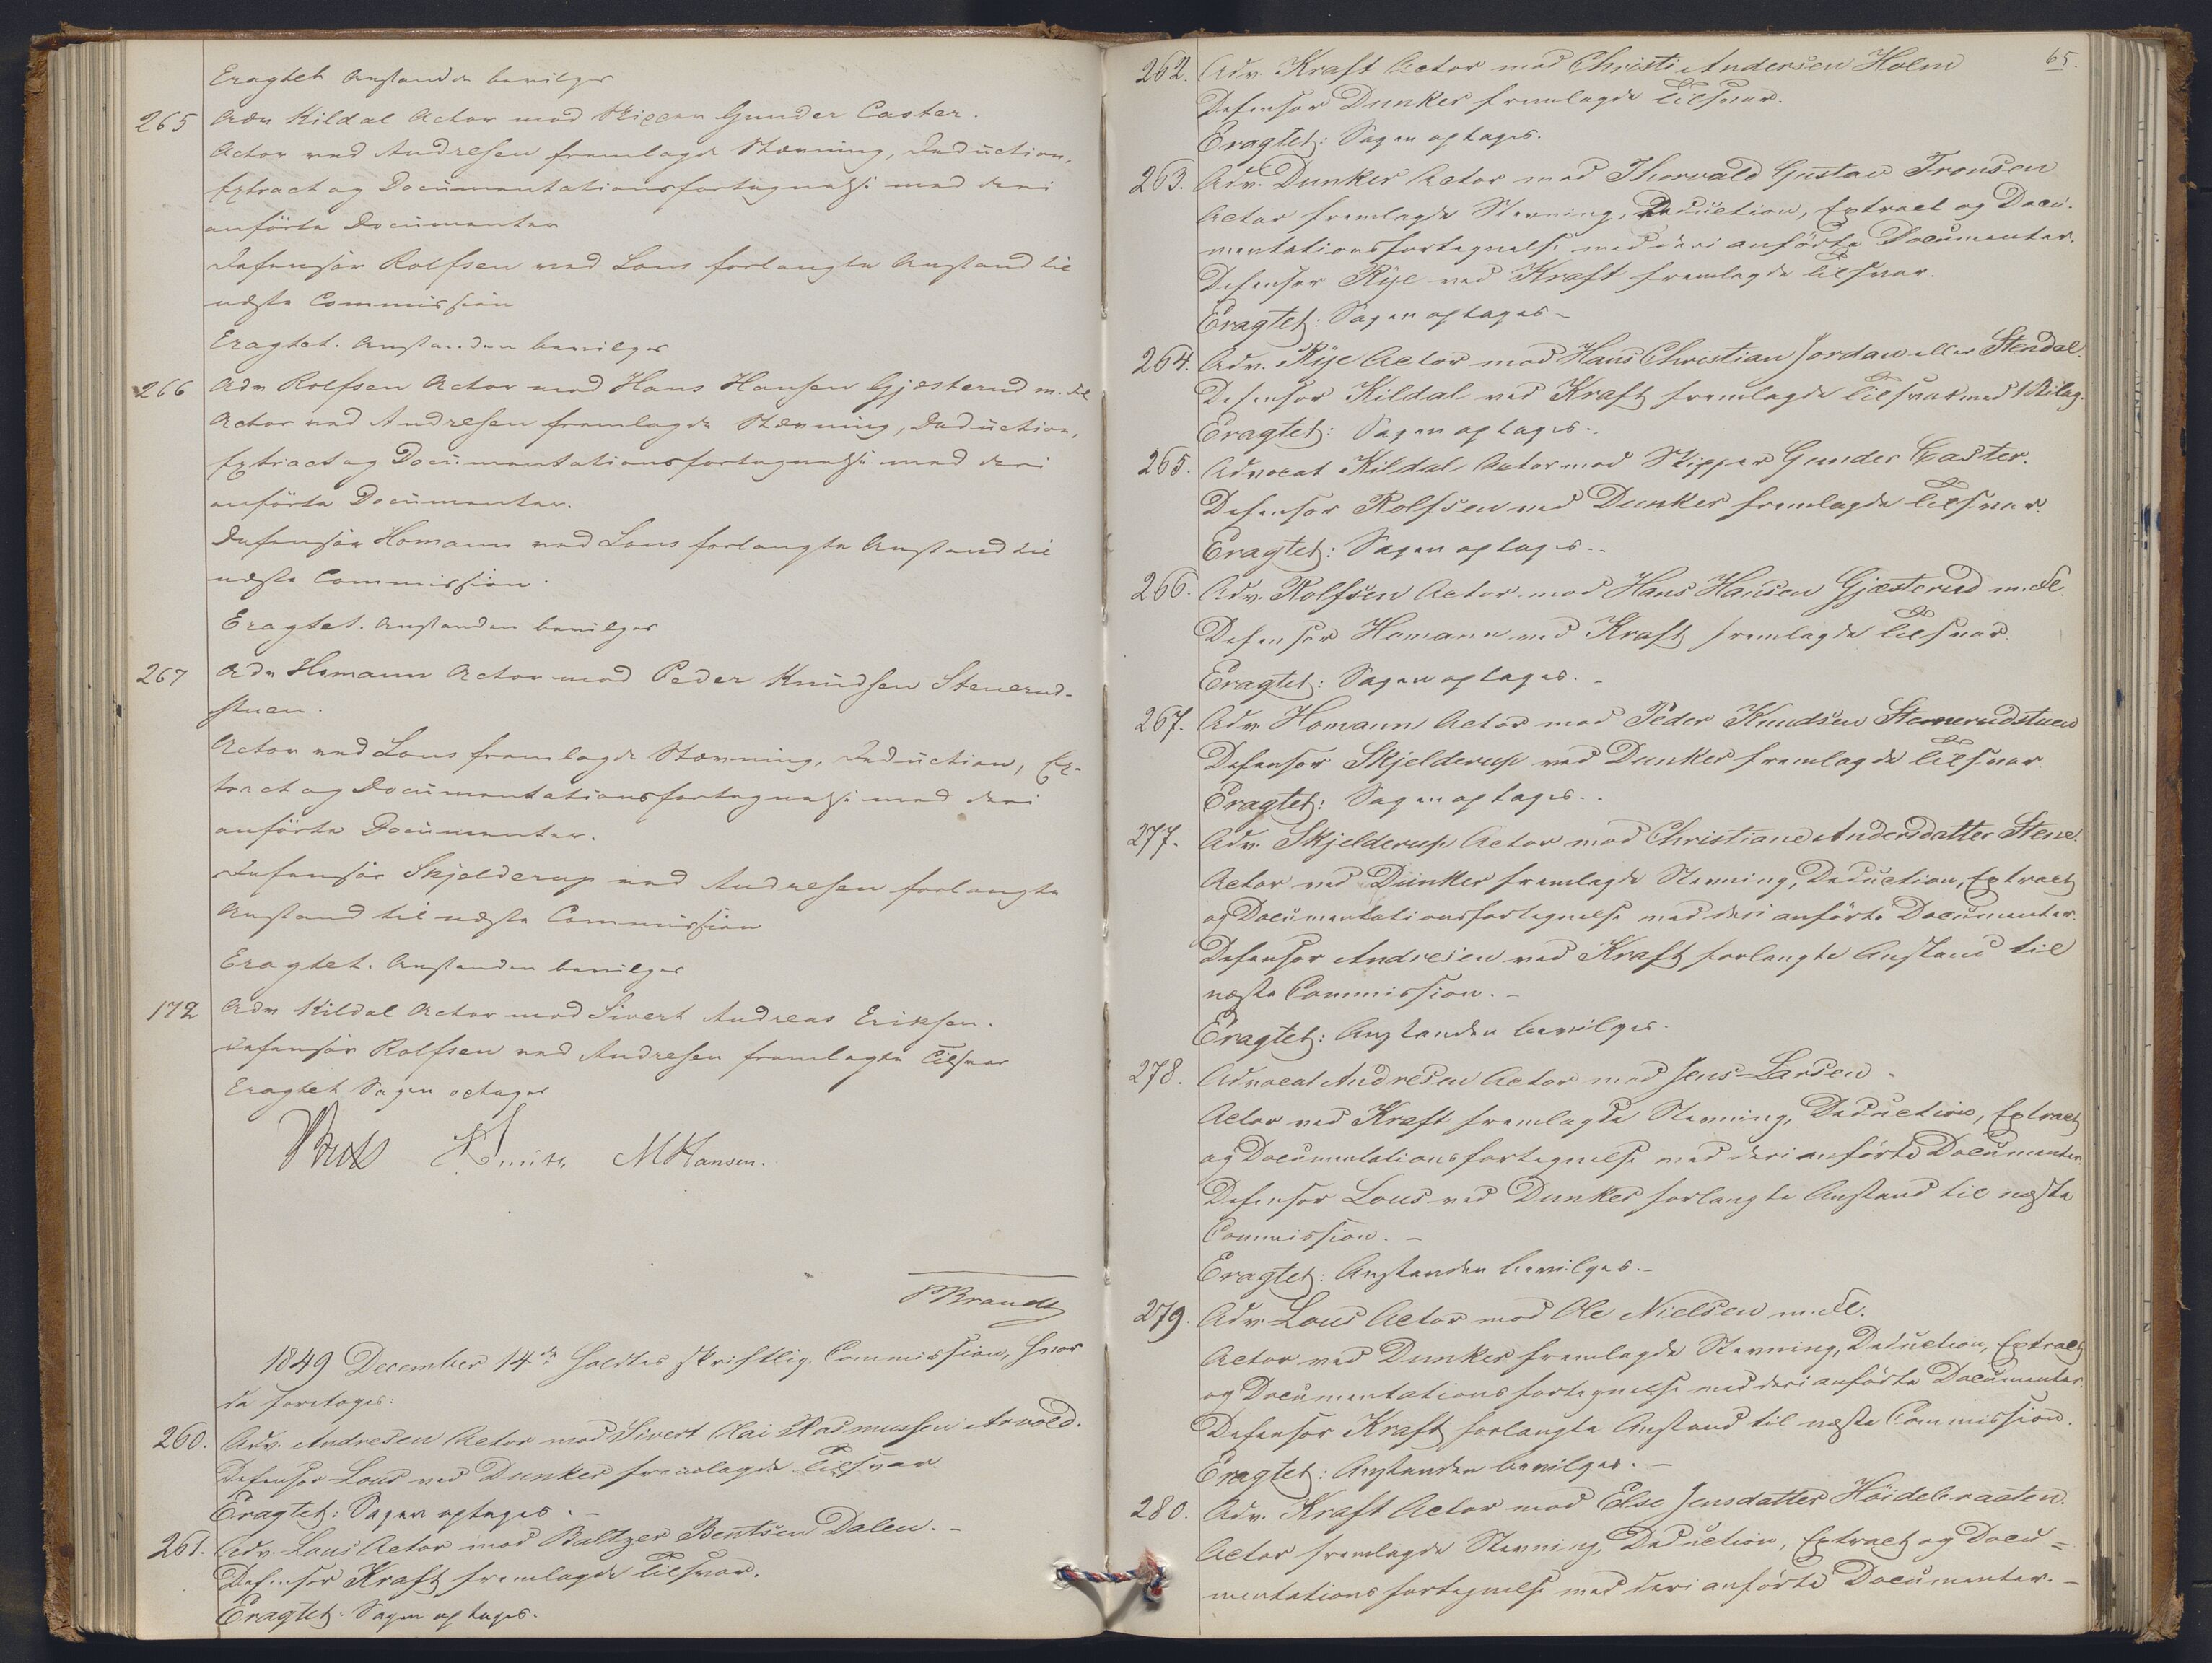 Eragtet Anstanden bevilges
265 Adv Kildal Actor mod Skipper Gunder Caster.
Actor ved Andresen fremlagde Stævning, Deduction,
Extract og Documentationsfortegnelse med deri
anförte Documenter
Defensor Rolfsen ved Lous forlangte Anstand til
næste Commission
Eragtet. Anstanden bevilges
266 Adv Rolfsen Actor mod Hans Hansen Gjæsterud m. fl
Actor ved Andresen fremlagde Stævning, Deduction,
Extract og Documentationsfortegnelse med deri
anförte Documenter.
Defensor Homann ved Lous forlangte Anstand til
næste Commission.
Eragtet. Anstanden bevilges
267 Adv Homann Actor mod Peder Knudsen Stenerud-
stuen.
Actor ved Lous fremlagde Stævning, Deduction, Ex-
tract og Documentationsfortegnelse med deri
anförte Documenter.
Defensor Skjelderup ved Andresen forlangte
Anstand til næste Commission
Eragtet. Anstanden bevilges
172 Adv Kildal Actor mod Sivert Andreas Eriksen.
Defensor Rolfsen ved Andresen fremlagde Tilsvar
Eragtet Sagen optages
MHansen.
PBrandt
1849 December 14de holdtes skriftlig Commission, hvor
da foretoges:
260. Adv. Andresen Actor mod Sivert Kai Rasmussen Arvold.
Defensor Lous ved Dunker fremlagde Tilsvar.
Eragtet: Sagen optages.-
261. Adv. Lous Actor mod Baltzer Bentsen Dalen.-
Defensor Kraft fremlagde Tilsvar.
Eragtet: Sagen optages.
65.
262. Adv. Kraft Actor mod Christi Andersen Holm
Defensor Dunker fremlagde Tilsvar.
Eragtet: Sagen optages.
263. Adv. Dunker Actor mod Thorvald Gustav Tronsen
Actor fremlagde Stevning, Deduction, Extract og Docu-
mentationsfortegnelse med deri anförte Documenter.
Defensor Rije ved Kraft fremlagde Tilsvar.
Eragtet: Sagen optages-
264. Adv. Rije Actor mod Hans Christian Jordan eller Stendal.
Defensor Kildal ved Kraft fremlagde Tilsvar med 1 Bilag.
Eragtet: Sagen optages..
265. Advocat Kildal Actor mod Skipper Gunder Caster.
Defensor Rolfsen ved Dunker fremlagde Tilsvar.
Eragtet: Sagen optages..
266. Adv. Rolfsen Actor mod Hans Hansen Gjæsterud m. fl.
Defensor Homann ved Kraft fremlagde Tilsvar.
Eragtet: Sagen optages.-
267. Adv Homann Actor mod Peder Knudsen Stenerudstuen
Defensor Skjelderup ved Dunker fremlagde Tilsvar.
Eragtet: Sagen optages..
277. Adv. Skjelderup Actor mod Christiane Andersdatter Stene.
Actor ved Dunker fremlagde Stevning, Deduction, Extract
og Documentationsfortegnelse med deri anförte Documenter.
Defensor Andresen ved Kraft forlangte Anstand til
næste Commission.-
Eragtet: Anstanden bevilges.
278. Advocat Andresen Actor mod Jens Larsen.
Actor ved Kraft fremlagde Stevning, Deduction, Extract
og Documentationsfortegnelse med deri anförte Documenter.
Defensor Lous ved Dunker forlangte Anstand til næste
Commission.-
Eragtet: Anstanden bevilges.-
279. Adv Lous Actor mod Ole Nielsen m. fl.
Actor ved Dunker fremlagde Stevning, Deduction, Extract
og Documentationsfortegnelse med deri anförte Documenter.
Defensor Kraft forlangte Anstand til næste Commission.
Eragtet: Anstanden bevilges.-
280. Adv. Kraft Actor mod Else Jensdatter Höidebraaten.
Actor fremlagde Stevning, Deduction, Extract og Docu=
mentationsfortegnelse med deri anförte Documenter.-